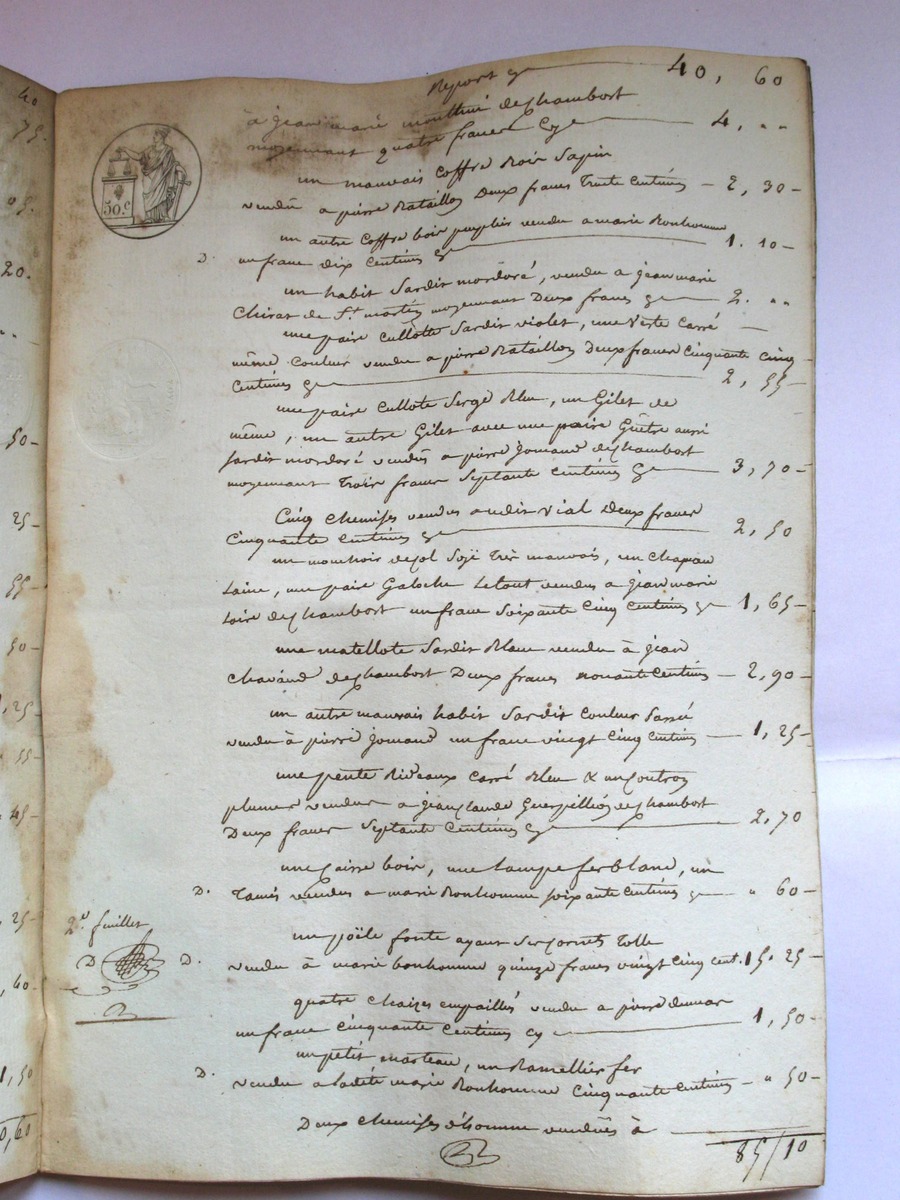 Report cy 40, 60
à jean marie deschambost
moyennant quatre francs cy 4, "
un mauvais coffre bois sapin
vendu a pierre Bataillon Deux francs Trente Centimes 2, 30
un autre coffre bois peuplier vendu a marie Bonhomme
D. un franc dix Centimes cy 1. 10
un habit Sardit mordoré, vendu a jean marie
Chirat de St. moyennant Deux francs cy 2. "
une paire Cullote Sardit violet, une Veste Carré
même Couleur vendu a pierre Bataillon Deux francs Cinquante Cinq
Centimes cy 2, 55
une paire Cullote Serge Bleu, un Gilet de
même, un autre Gilet avec une paire Guêtre aussi
Sardit mordoré vendus a pierre Jomand deschambost
moyennant Trois francs Septante Centimes cy 3, 70
Cinq Chemises vendus audit Vial Deux francs
Cinquante Centimes cy 2, 50
un mouchoir decol Soÿe Très mauvais, un Chapeau
Laine, une paire Galoche Le tout vendus a jean marie
Loire deschambost un franc Soixante Cinq Centimes cy 1, 65
une matellote Sardit Bleu vendu à jean
Chavand deschambost Deux francs nonante Centimes 2, 90
un autre mauvais habit Sardit Couleur
vendu à pierre Jomand un franc vingt Cinq Centimes 1, 25
une pente Rideaux Carré Bleu & un
plumes vendus a jean Claude Guerpillion deschambost
Deux francs Septante Centimes cy 2, 70
une Caisse bois, une Lampe fer Blanc, un
D. Tamis vendus a marie Bonhomme soixante Centimes cy " 60
2e. feuillet
un poële fonte ayant Ses Cornets Tolle
D. D. vendu à marie bonhomme quinze francs vingt Cinq Cent. 15. 25
quatre Chaizes empaillés vendu a pierre
un franc Cinquante Centimes cy 1, 50
un petit marteau, un fer
D. vendu a Ladite marie Bonhomme Cinquante Centimes " 50
Deux Chemises d'homme vendües à
85/10
50c.
40
75.
05.
20.
50
25
55
50
,25
55
45
25
,60
1,50
0,60